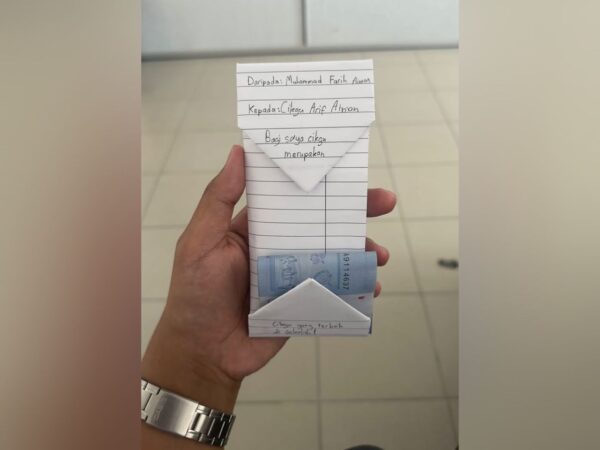 Daripada: Muhammad Farih Aiman
Kepada: Cikgu Arif Aiman
Bagi saya cikgu
merupakan
A9114637
Cikgu yang terbaik
di